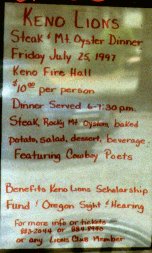 KENO LIONS
Steak & Mt. Oyster Dinner
Friday July 25, 1997
Keno Fire Hall
$10.00 per person
Dinner Served 6-7:30 p.m.
Steak, Rocky Mt. Oysters, baked
potato, salad, dessert, beverage.
Featuring Cowboy Poets
Benefits Keno Lions Scholarship
Fund & Oregon Sight & Hearing
For more info or tickets
883-2044 or
or any Lions Club Member